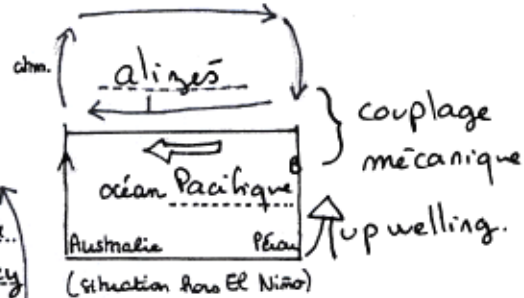 atm.
alizés
couplage
mécanique
océan Pacifique
Australie Pérou
upwelling.
(situation hors El Niño)